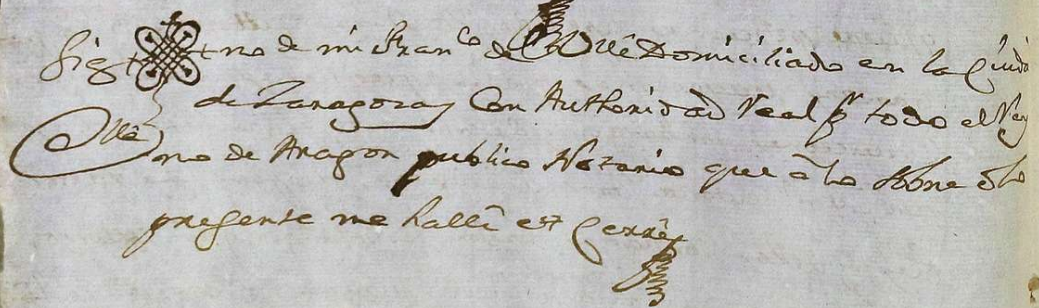 Sig no de mi Fran.co de Ollé Domiciliado en la Ciuda
de Zaragoza y Con Authoridad Real pr todo el Rey
Ollé no de Aragon publico Notario que â lo sobre dho
presente me hallê et Cerrê